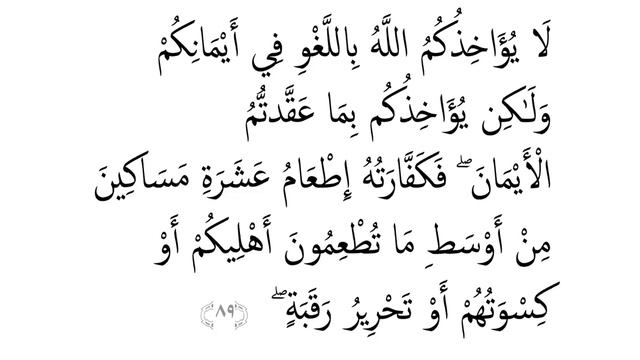 لَا يُؤَاخِذُكُمُ اللَّهُ بِاللَّغْوِ فِي أَيْمَانِكُمْ
وَلَٰكِن يُؤَاخِذُكُم بِمَا عَقَّدتُّمُ
الْأَيْمَانَ ۖ فَكَفَّارَتُهُ إِطْعَامُ عَشَرَةِ مَسَاكِينَ
مِنْ أَوْسَطِ مَا تُطْعِمُونَ أَهْلِيكُمْ أَوْ
كِسْوَتُهُمْ أَوْ تَحْرِيرُ رَقَبَةٍ ۖ ﴿٨٩﴾